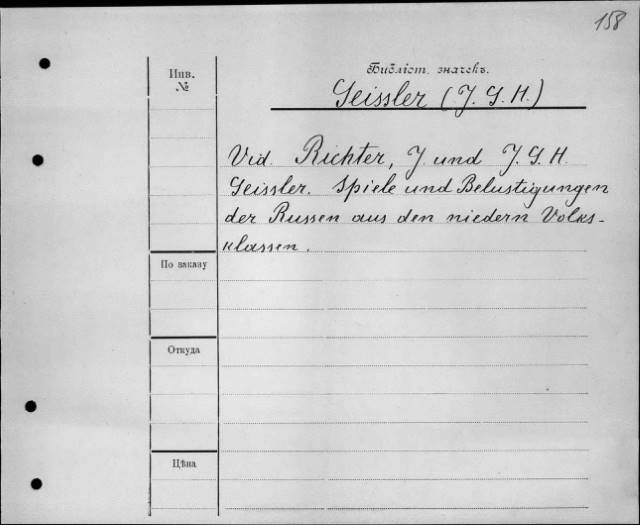 158
Инв.
№
Библіот. значекъ.
Geissler (J. G. H.)
Vid. Richter, J. und J. G. H.
Geissler. Spiele und Belustigungen
der Russen aus den niedern Volks-
klassen.
По заказу
Откуда
Цѣна